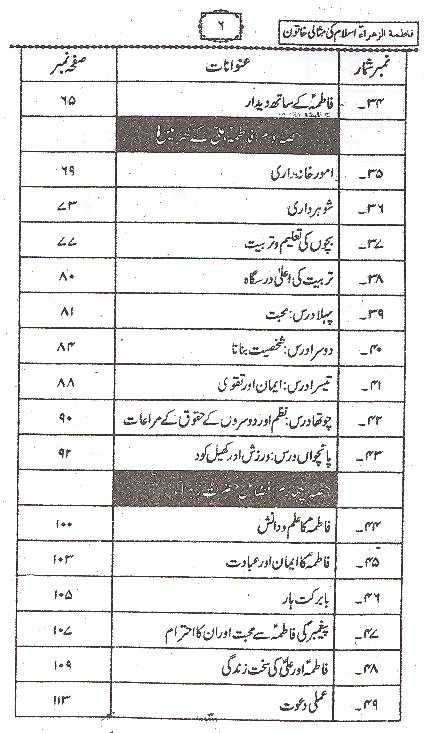 فاطمۃ الزھراءؑ اسلام کی مثالی خاتون ۶
نمبر شمار عنوانات صفحہ نمبر
۳۴۔ فاطمہؑ کے ساتھ دیدار ۶۵
فاطمہؑ علیؑ کے گھر میں
۳۵۔ امور خانہ داری ۶۹
۳۶۔ شوہر داری ۷۳
۳۷۔ بچوں کی تعلیم و تربیت ۷۷
۳۸۔ تربیت کی اعلیٰ درسگاہ ۸۰
۳۹۔ پہلا درس: محبت ۸۱
۴۰۔ دوسرا درس: شخصیت بنانا ۸۴
۴۱۔ تیسرا درس: ایمان اور تقویٰ ۸۸
۴۲۔ چوتھا درس: نظم اور دوسروں کے حقوق کے مراعات ۹۰
۴۳۔ پانچواں درس: ورزش اور کھیل کود ۹۲
حصہ چہارم فضائل حضرت زہراء
۴۴۔ فاطمہؑ کا علم و دانش ۱۰۰
۴۵۔ فاطمہؑ کا ایمان اور عبادت ۱۰۳
۴۶۔ بابرکت ہار ۱۰۵
۴۷۔ پیغمبرؐ کی فاطمہؑ سے محبت اور ان کا احترام ۱۰۷
۴۸۔ فاطمہؑ اور علیؑ کی سخت زندگی ۱۰۹
۴۹۔ عملی دعوت ۱۱۳